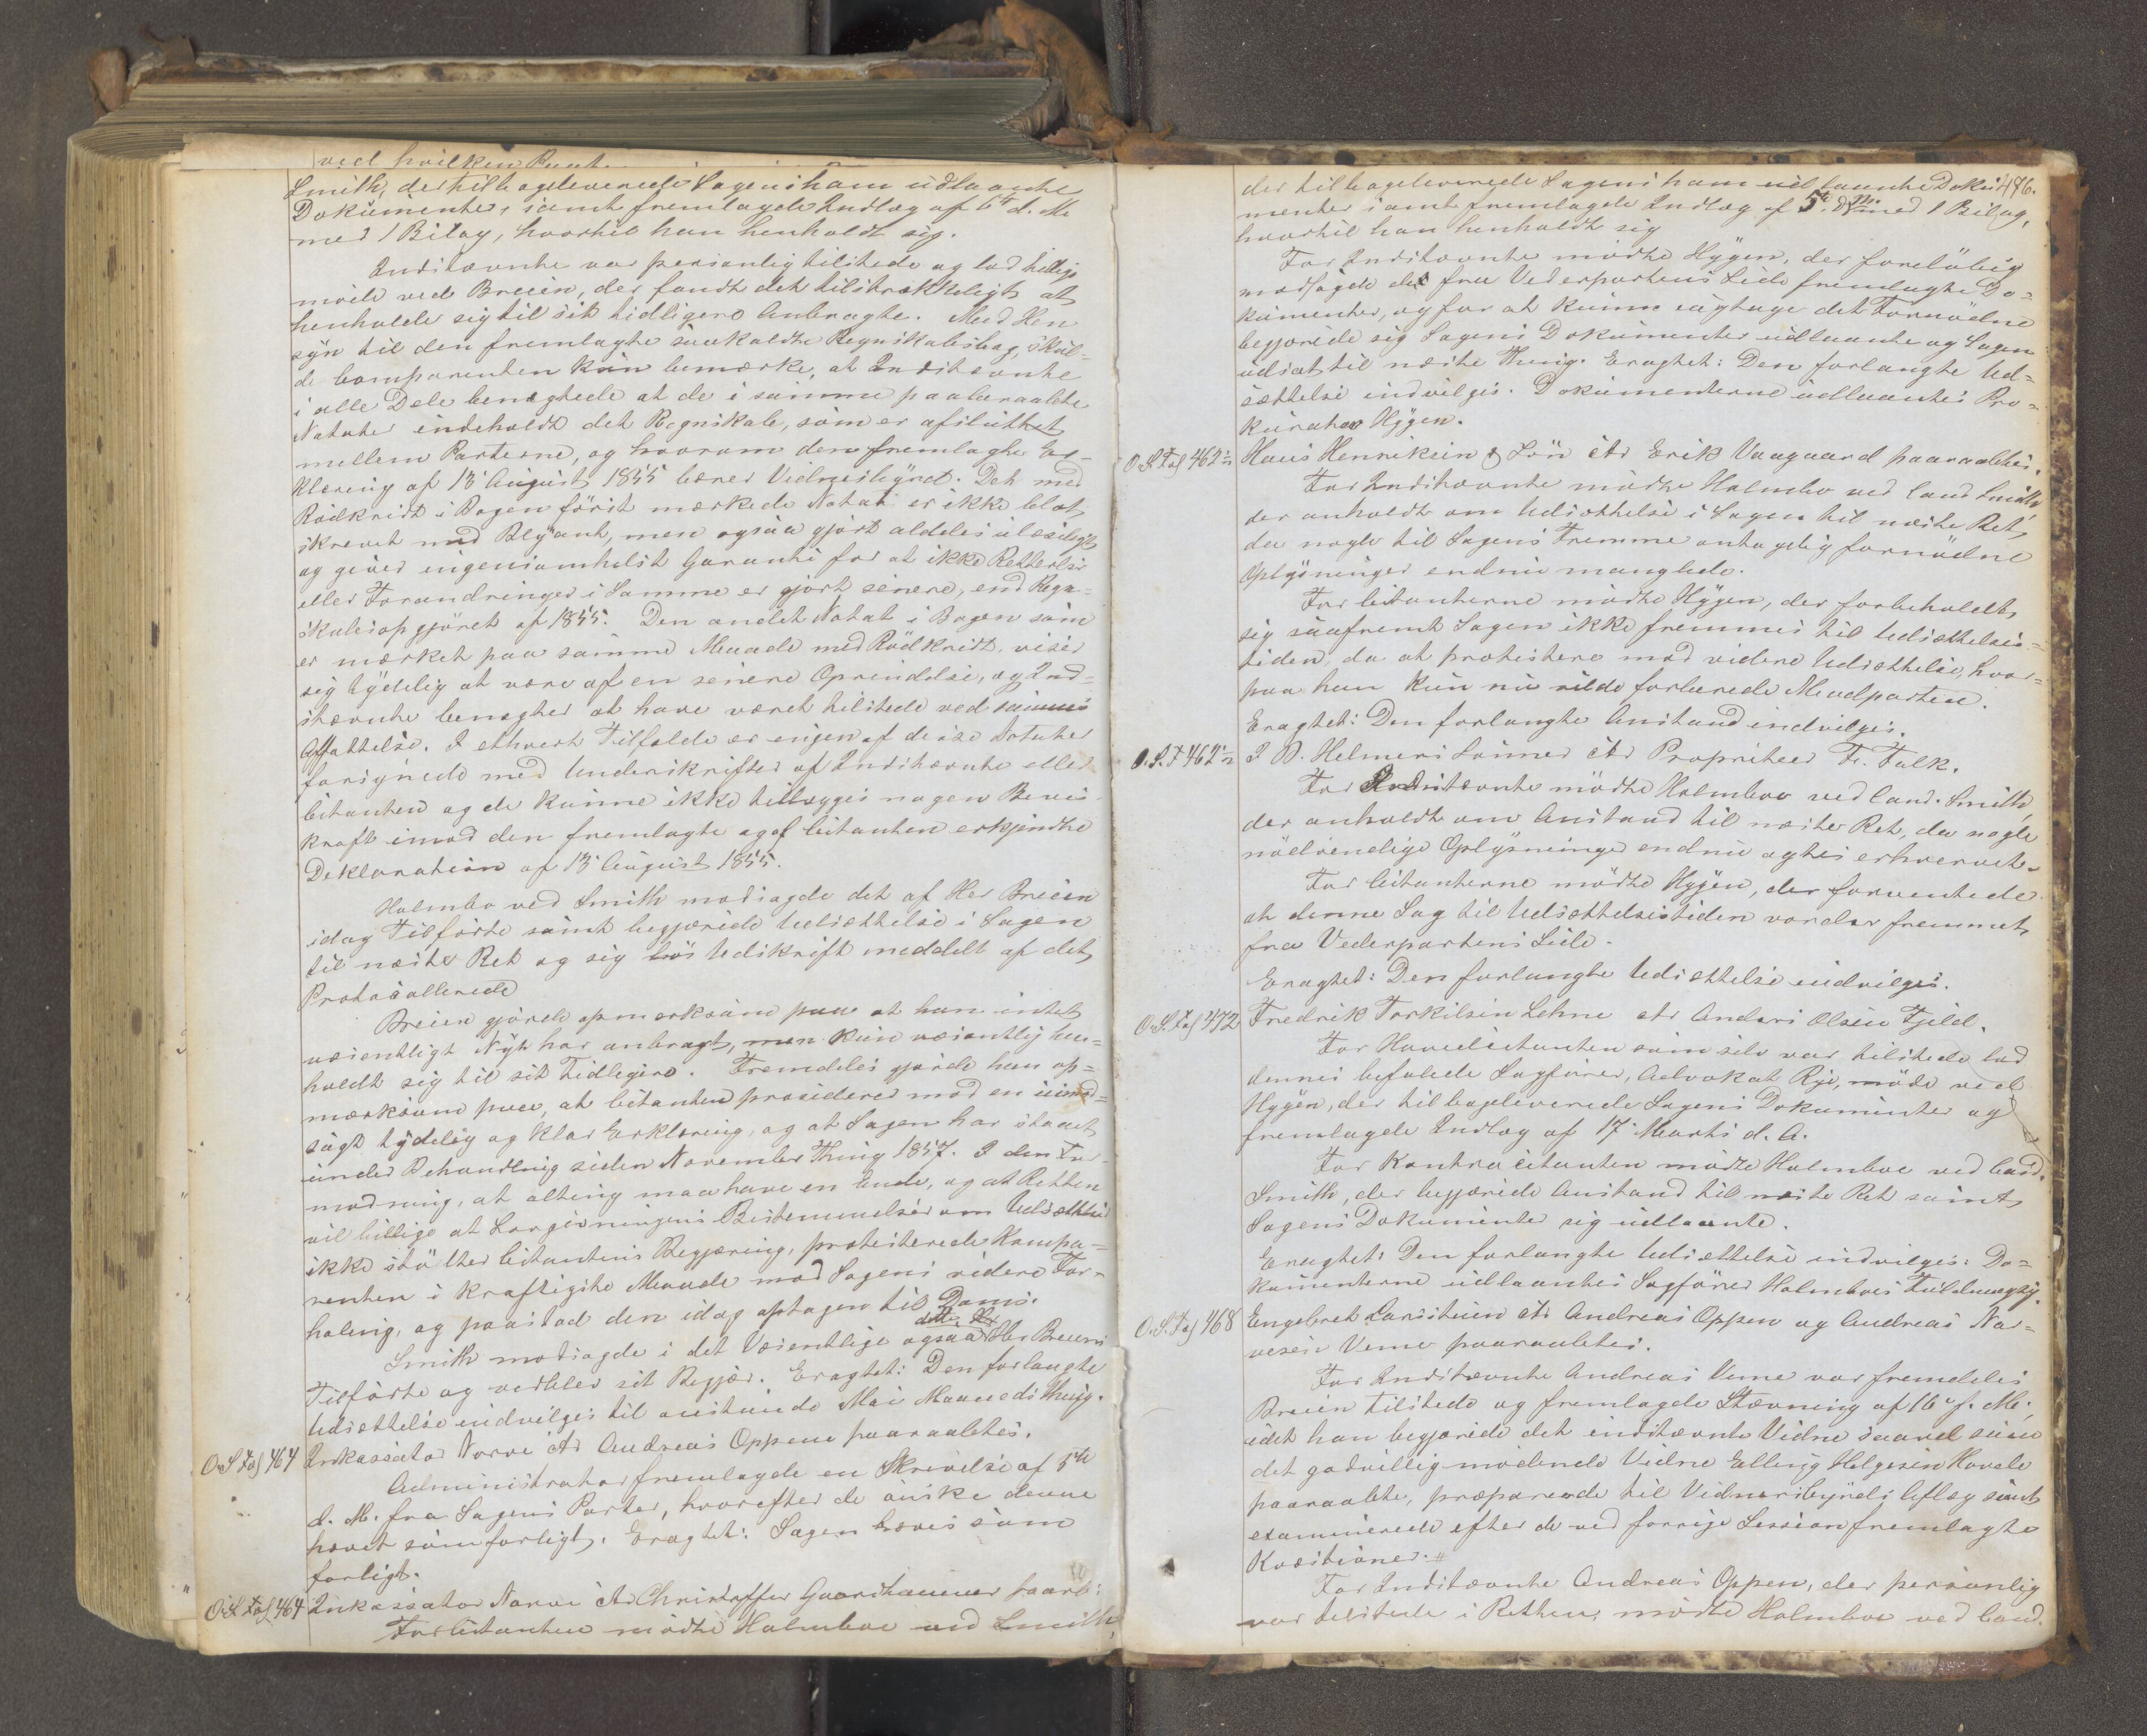 ved hvilken
Smith, der tilbageleverede Sagens ham udlaante
Dokumenter, samt fremlagde Indlæg af 6te d. M.
med 1 Bilag, hvortil han henholdt sig.
Indstævnte var personlig tilstede og lod tillige
møde ved Breien, der fandt det tilstrækkeligt at
henholde sig til sit tidligere Anbragte. Med Hen
syn til den fremlagte saakaldte Regnskabsbog, skul-
de Comparenten kun bemærke, at Indstævnte
i alle Dele benægtede at de i samme paaberaabte
Notater indeholdt det Regnskab, som er afsluttet
mellem Parterne, og hvorom den fremlagte Er-
klæring af 13 August 1855 bærer Vidnesbyrd. Det med
Rødkridt i Bogen først mærkede Notat er ikke blot
skrevet med Blyant, men ogsaa gjort aldeles ulæseligt
og giver ingensomhelst Garanti for at ikke Rettelser
eller Forandringer i Samme er gjort senere, end Regn-
skabsopgjøret af 1855. Den andet Notat i Bogen som
er mærket paa samme Maade med Rødkridt, viser
sig tydelig at være af en senere Oprindelse, og Ind-
stævnte benægter at have været tilstede ved sammes
Affattelse. I ethvert Tilfælde er ingen af disse Notater
forsynede med Underskrifter af Indstævnte eller
Citanten og de kunne ikke tillægges nogen Bevis
kraft imod den fremlagte og af Citanten erkjendte
Deklaration af 13 August 1855.
Holmbo ved Smith modsagde det af Her Breien
idag Tilførte samt begjærede Udsættelse i Sagen
til næste Ret og sig Udskrift meddelt af det
Protocollerede
Breien gjorde opmærksom paa at han intet
væsentligt Nyt har anbragt, men kun væsentlig hen-
holdt sig til sit Tidligere. Fremdeles gjorde han op-
mærksom paa, at Citanten prosiderer mod en uimod-
sagt tydelig og klar Erklæring, og at Sagen har staaet
under Behandling siden November Thing 1857. I den For-
modning, at alting maa have en Ende, og at Retten
vil billige at Lovgivningens Bestemmelser om Udsættelse
ikke støtter Citantens Begjæring, protesterede Kompa-
renten i kraftigste Maade mod Sagens videre For-
haling, og paastod den idag optagen til Doms.
Smith modsagde i det Væsentlige ogsaa dette Her Breiens
Tilførte og vedblev sit Begjær. Eragtet: Den forlangte
Udsættelse indvilges til anstundende Mai Maaneds Thing.
O. S. Fol 464 Inkassator Norve ctr Andreas Oppen paaraabtes.
Administrator fremlagde en Skrivelse af 5te
d. M. fra Sagens Parter, hvorefter de ønske denne
hævet som forligt. Eragtet: Sagen hæves som
forligt.
O. S. Fol 464 Inkassator Norve ctr Christoffer Gaardhammer paarb:
For Citanten mødte Holmboe ved Smith,
476.
der tilbageleverede Sagens ham udlaante Doku-
menter samt fremlagde Indlæg af 5te d. M. med 1 Bilag,
hvortil han henholdt sig
For Indstævnte mødte Hygen, der foreløbig
modsagde det fra Vederpartens Side fremlagte Do-
kumenter, og for at kunne iagttage det Fornødne
begjærede sig Sagens Dokumenter udlaante og Sagen
udsat til næste Thing. Eragtet: Den forlangte Ud-
sættelse indvilges. Dokumenterne udlaantes Pro-
kurator Hygen.
O. S. Fol 462 Hans Henriksen & Søn ctr Erik Vaagaard paaraabtes.
For Indstævnte mødte Holmbo ved Cand Smith
der anholdt om Udsættelse i Sagen til næste Ret,
da nogle til Sagens Fremme antagelig fornødne
Oplysninger endnu manglede.
For Citanterne mødte Hygen, der forbeholdt
sig saafremt Sagen ikke fremmes til Udsættelses-
tiden, da at protestere mod videre Udsættelse, hvor-
paa han kun nu vilde forberede Modparten.
Eragtet: Den forlangte Anstand indvilges.
O. S. F 462 J. D. Helmers Sønner ctr Proprietær Fr. Falk.
For Indstævnte mødte Holmboe ved Cand. Smith
der anholdt om Anstand til næste Ret, da nogle
nødvendige Oplysninger endnu agtes erhvervede.
For Citanterne mødte Hygen, der forventede
at denne Sag til Udsættelsestiden vorder fremmet
fra Vederpartens Side.
Eragtet: Den forlangte Udsættelse indvilges.
O. S. Fol 472 Fredrik Torkilsen Lehne ctr Anders Olsen Fjeld.
For Hovedcitanten som selv var tilstede lod
dennes befalede Sagfører, Advokat Rye, møde ved
Hygen, der tilbageleverede Sagens Dokumenter og
fremlagde Indlæg af 17 Marts d. A.
For Kontracitanten mødte Holmboe ved Cand.
Smith, der begjærede Anstand til næste Ret samt
Sagens Dokumenter sig udlaante.
Eragtet: Den forlangte Udsættelse indvilges: Do-
kumenterne udlaantes Sagfører Holmboes Fuldmægtig.
O. S. Fol 468 Engebret Larsstuen ctr Andreas Oppen og Andreas Nar-
vesen Veme paaraabtes.
For Indstævnte Andreas Veme var fremdeles
Breien tilstede og fremlagde Stævning af 16 f. M.,
idet han begjærede det indstævnte Vidne saavel som
det godvillig mødende Vidne Elling Helgesen Hovde
paaraabte, præparerede til Vidnesbyrds Aflæg samt
examinerede efter de ved forrige Session fremlagte
Kvæstioner.
For Indstævnte Andreas Oppen, der personlig
var tilstede i Retten, mødte Holmboe ved Cand.